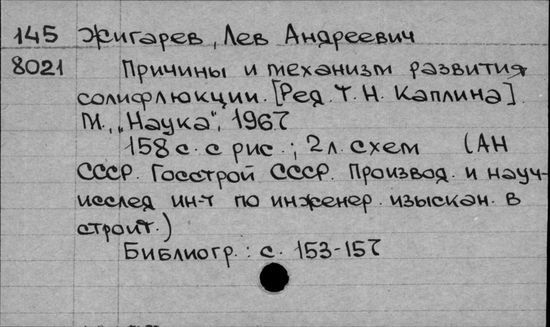 145 Жигарев, Лев Андреевич
8021 Причины и механизм развития
солифлюкции. [Ред. Т. Н. Каплина].
М., „Наука", 1967
158 с. с рис.; 2 л. схем (АН
СССР. Госстрой СССР. Производ. и науч-
исслед ин-т по инженер. изыскан. в
строит.)
Библиогр.: с. 153-157